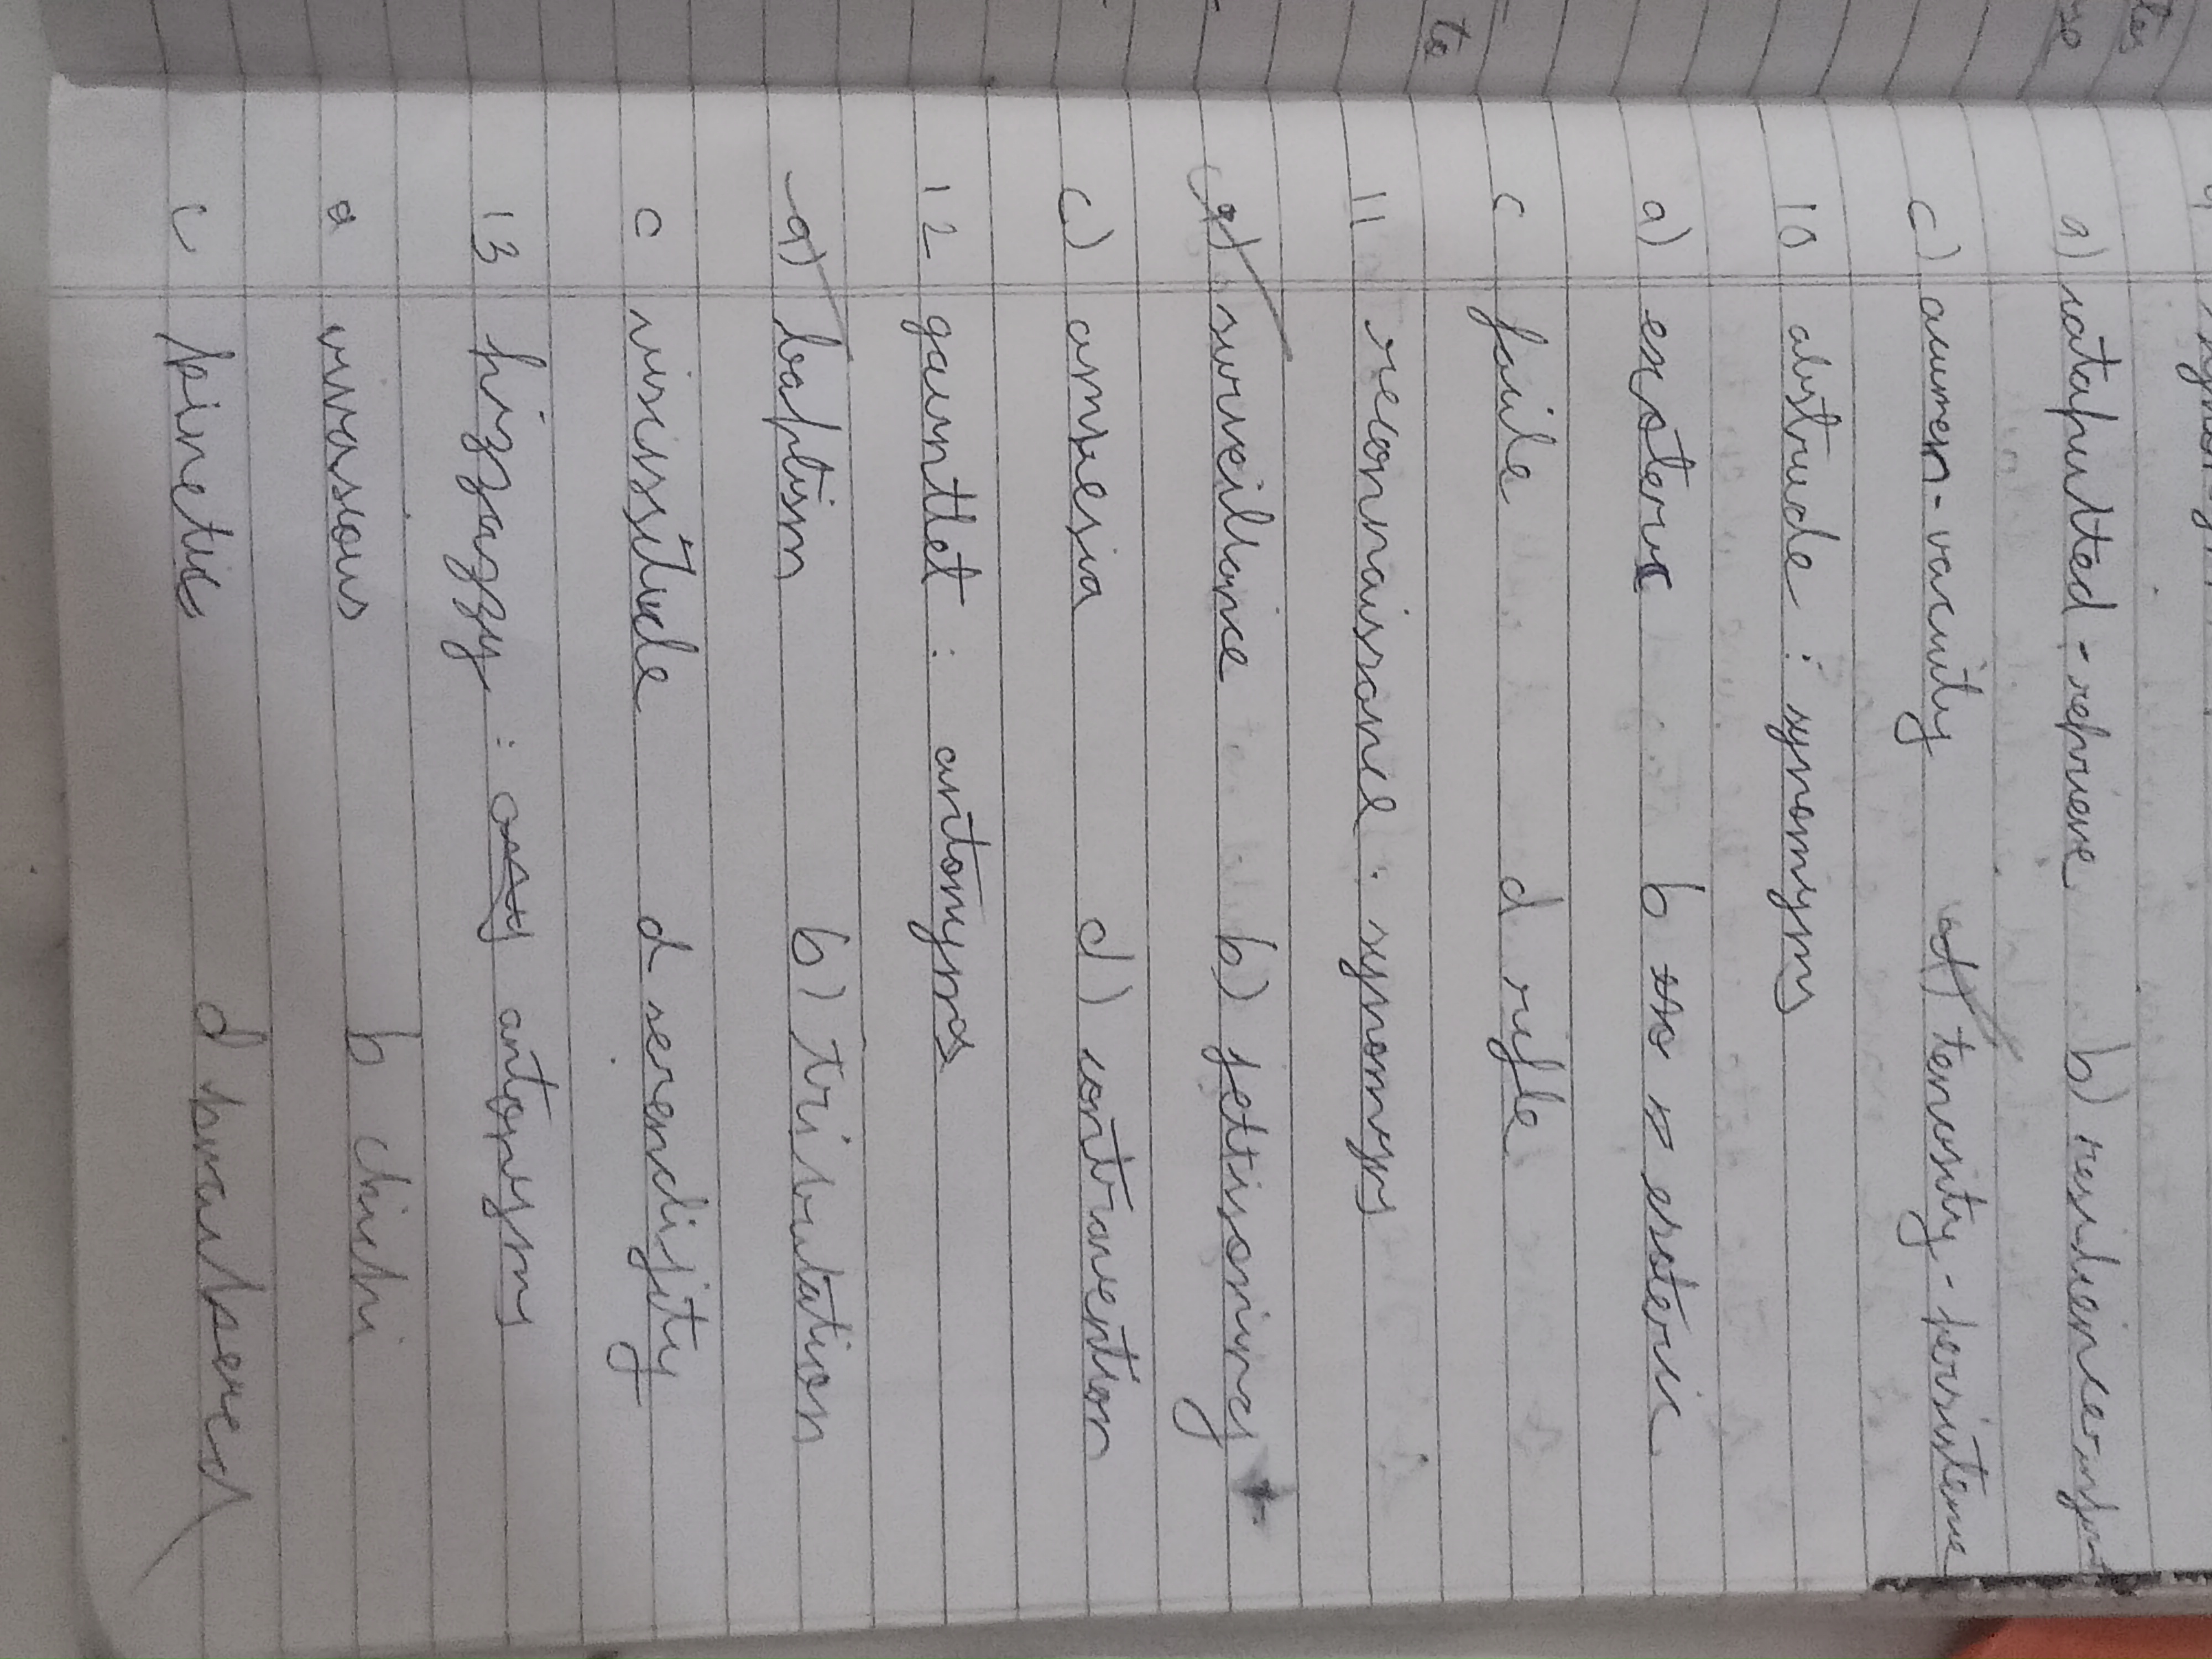 a) catapulted - reprieve b) resilience
c) acumen - vacuity d) tenacity - persistence
10 abstrude : synonyms
a) exoteric b esoteric
c facile d rifle
11 reconnaissance : synonyms
a) surveillance b) jettisoning
c) amnesia d) contravention
12 gauntlet : antonyms
a) baptism b) tribulation
c vicissitude d serendipity
13 antonyms
a viscous b chichi
c kinetic d